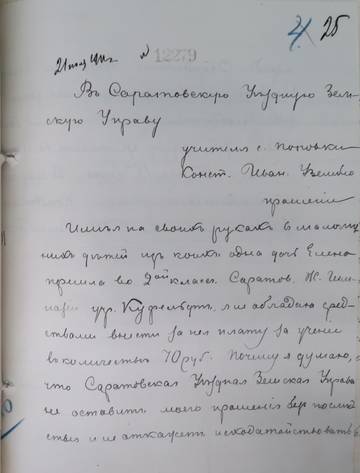 2. 25
21 мая 1911 г. № 12279
Въ Саратовскую Уѣздную Зем-
скую Управу
учителя с. Поповки
Конст. Иван.
прошеніе
Имѣя на своихъ рукахъ 6 малолѣт-
нихъ дѣтей изъ коихъ одна дочь Елена
перешла во 2ой классъ Саратов. Ж. Гим-
назіи учр. Куфельдъ, я не обладаю сред-
ствами внести за нея плату за ученіе
въ количествѣ 70 руб. Почему я думаю,
что Саратовская Уѣздная Земская Управа
не оставитъ моего прошенія безъ послѣд-
ствія и не откажетъ исходатайствовать